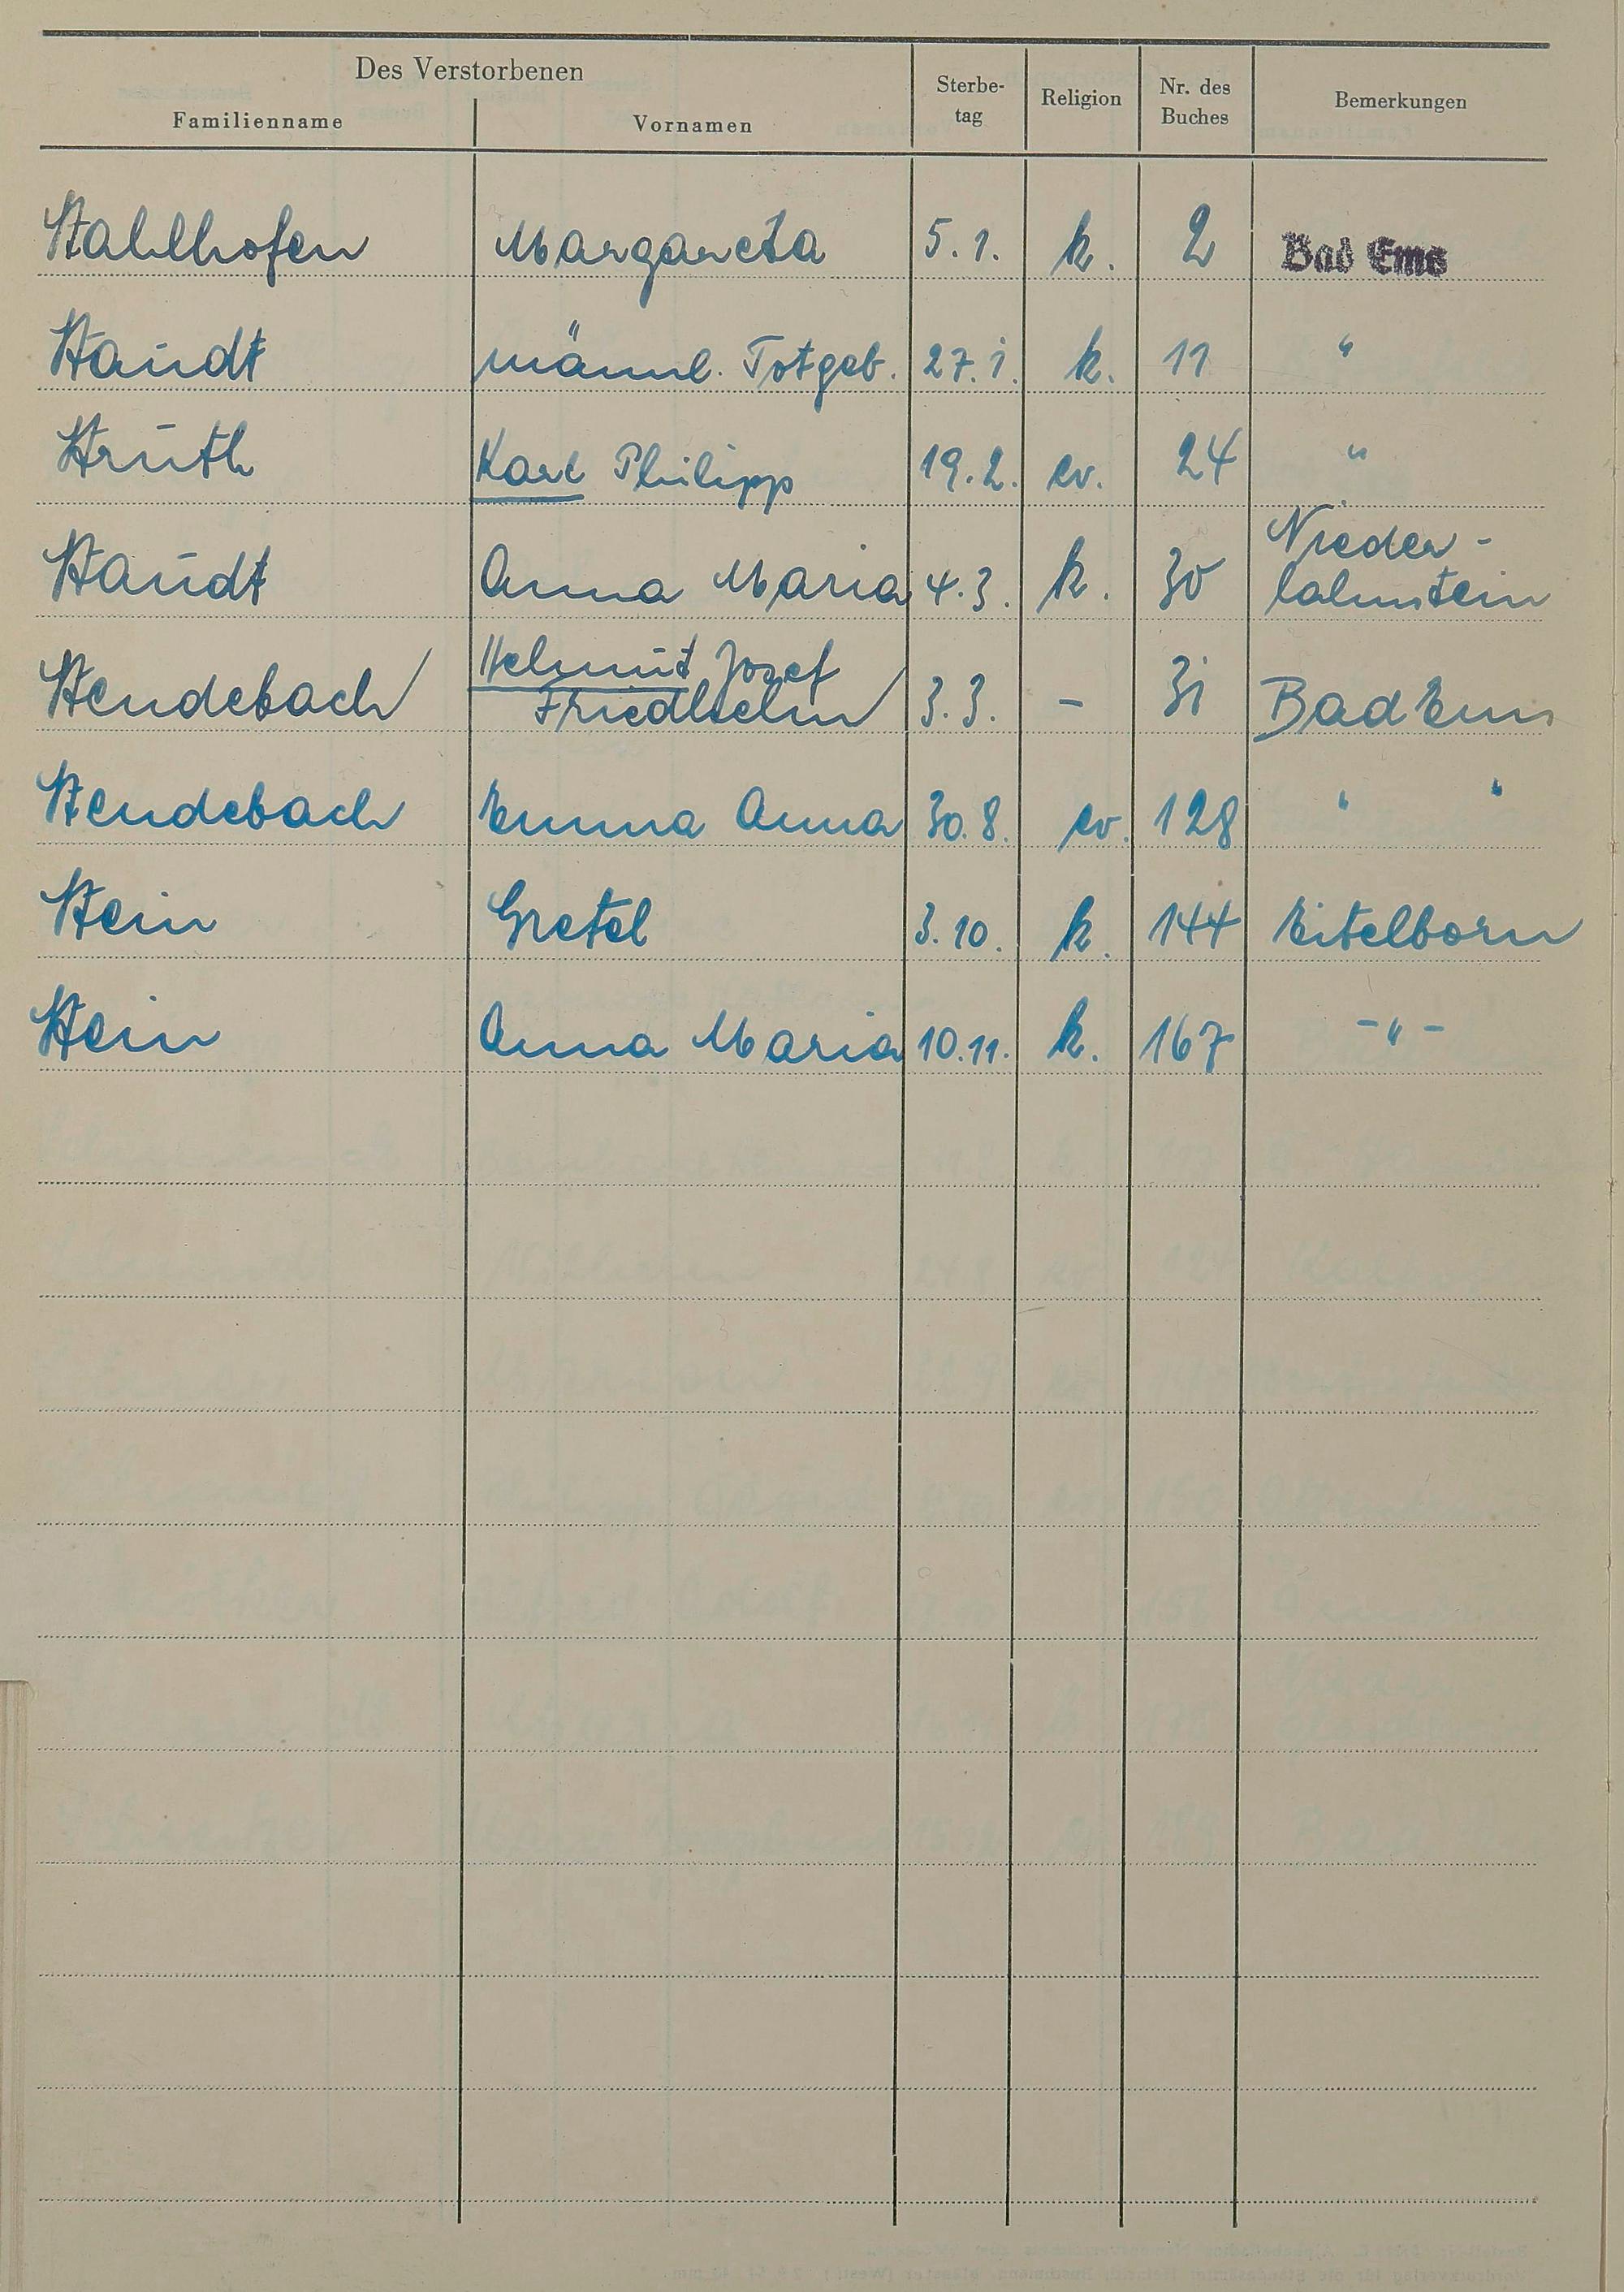 Des Verstorbenen
Familienname Vornamen Sterbe-tag Religion Nr. des Buches Bemerkungen
Stahlhofen Margareta 5.1. k. 2 Bad Ems
Staudt männl. Totgeb. 27.1. k. 11 "
Struth Karl Philipp 19.2. ev. 24 "
Staudt Anna Maria 4.3. k. 30 Nieder-
lahnstein
Stendebach Helmut Josef
Friedhelm 3.3. - 31 Bad Ems
Stendebach Emma Anna 30.8. ev. 128 " "
Stein Gretel 3.10. k. 144 Eitelborn
Stein Anna Maria 10.11. k. 167 -"-